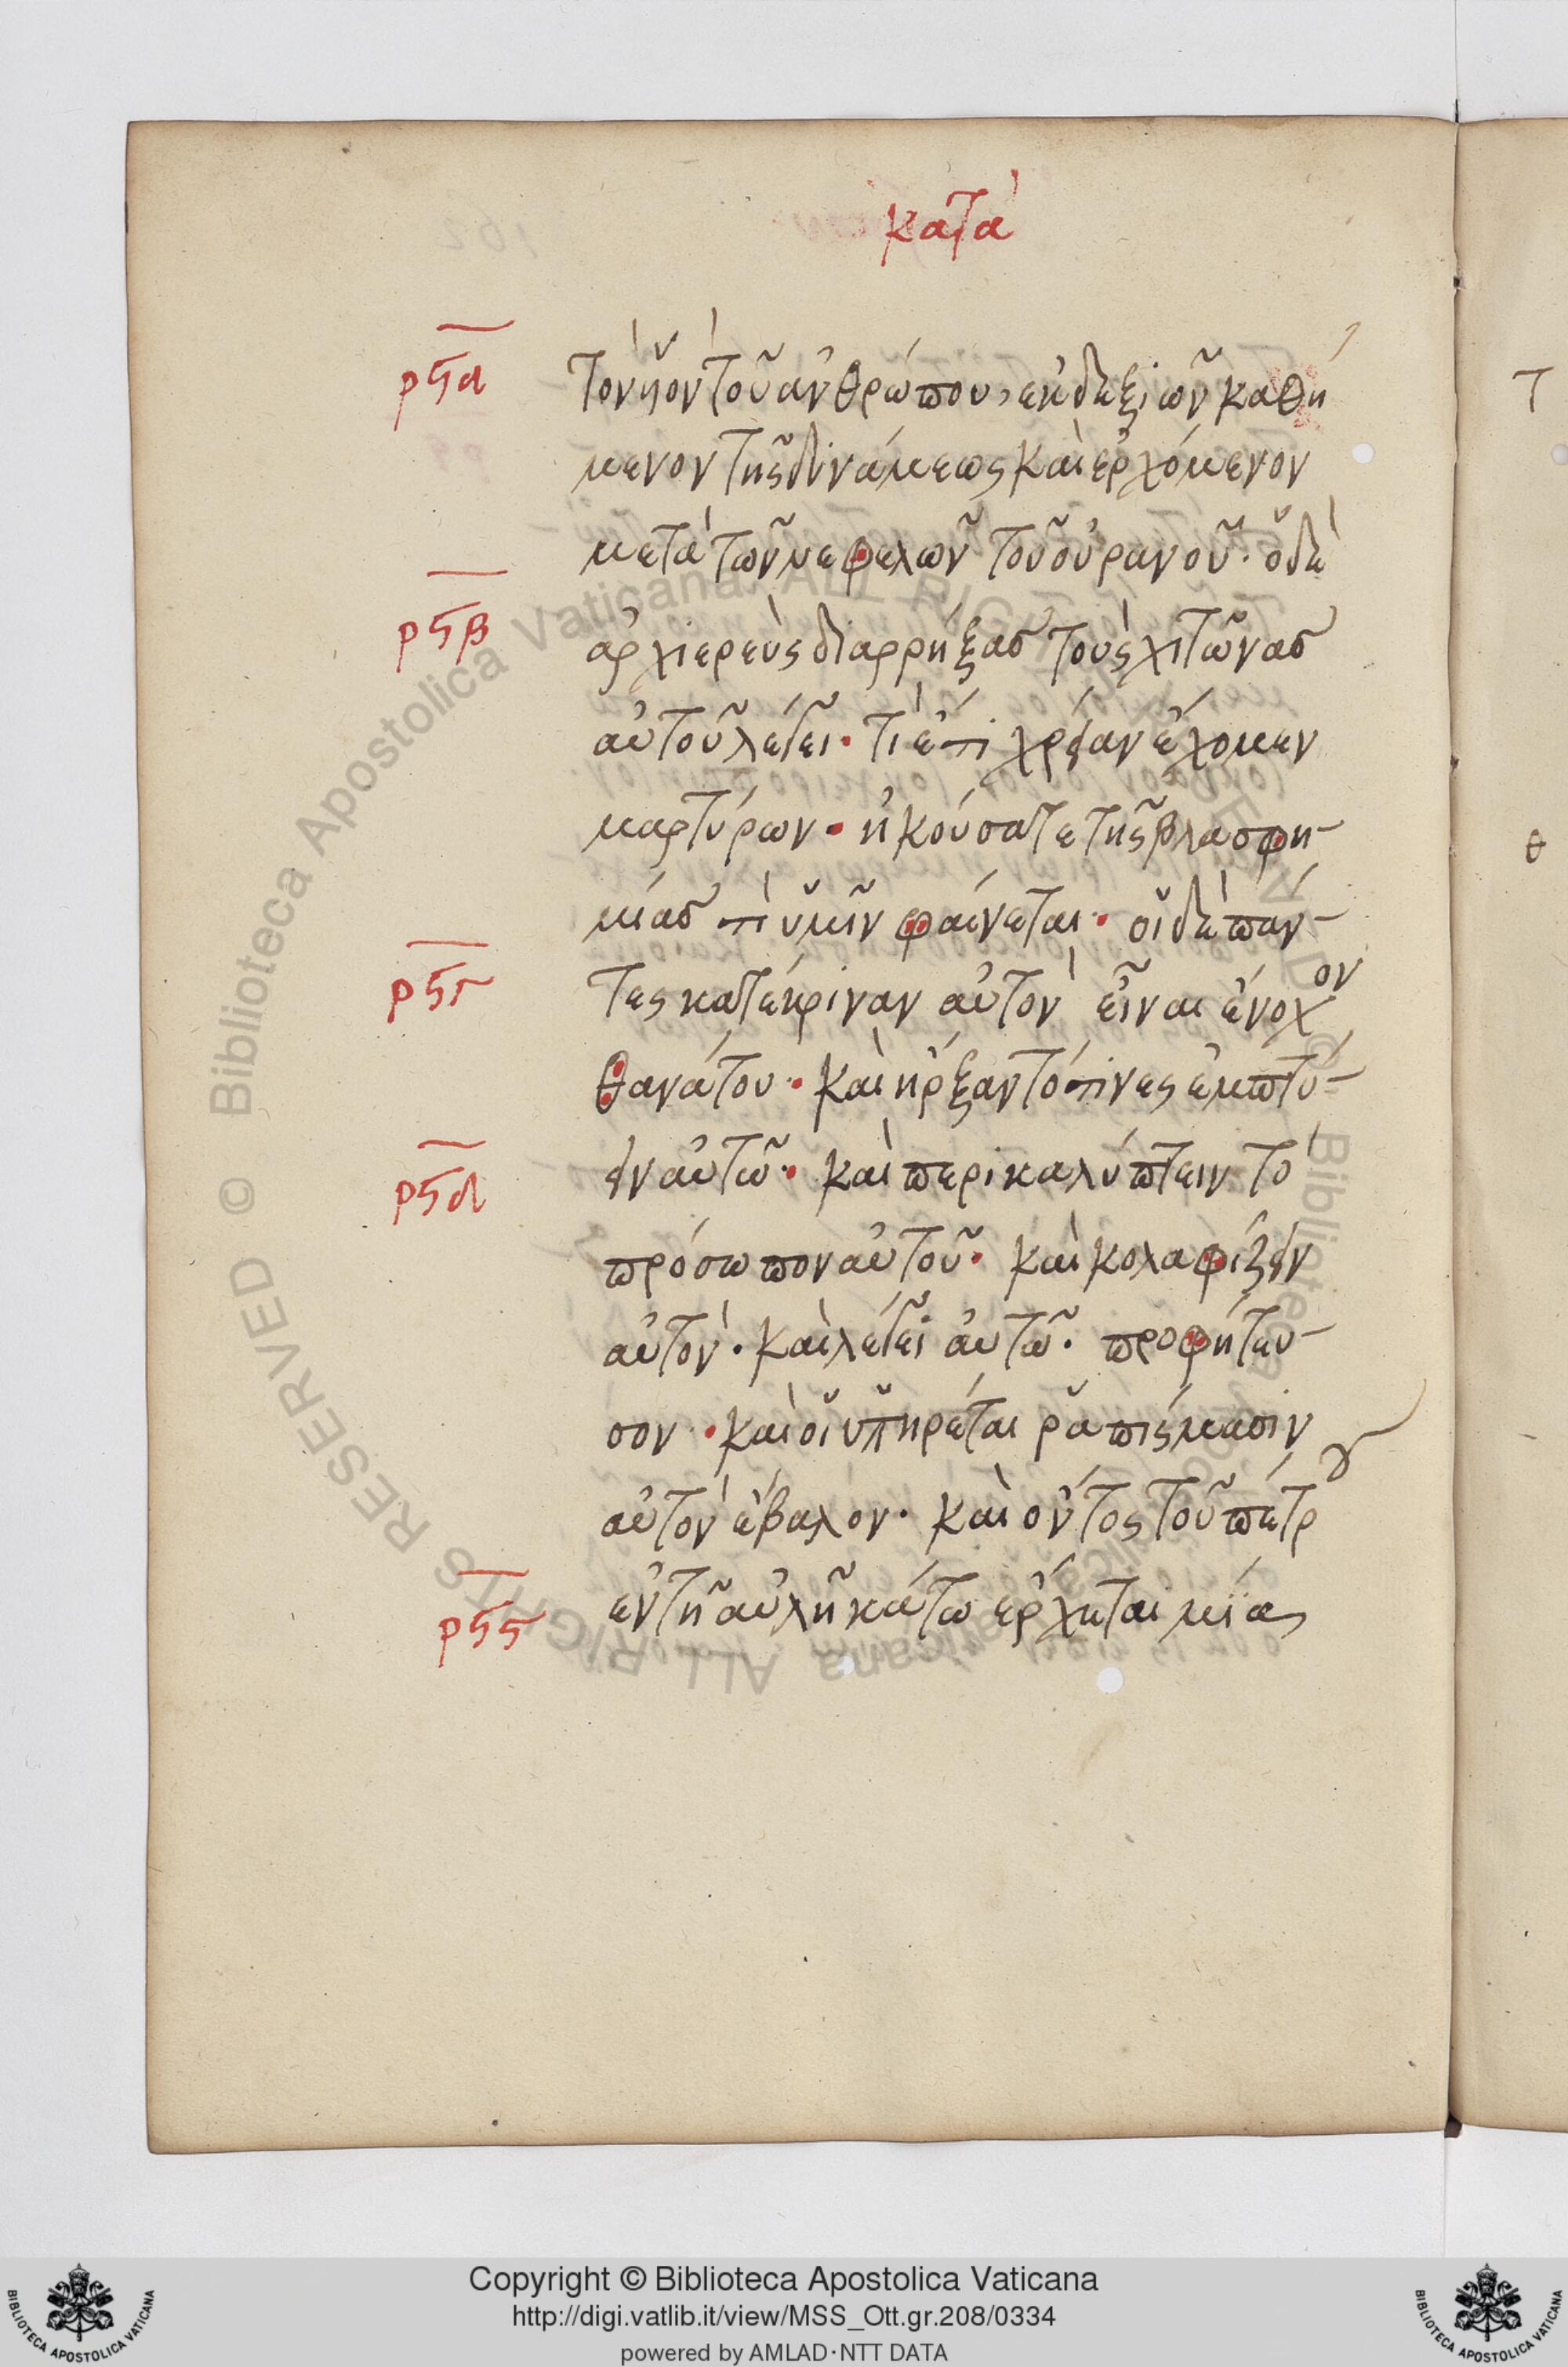 κατὰ
ρϟα
τὸν ηὸν τοῦ ἀνθρώπου, ἐκ δεξιῶν καθή
μενον τῆς δυνάμεως καὶ ἐρχόμενον
μετὰ τῶν νεφελῶν τοῦ οὐρανοῦ· ὁ δὲ
ρϟβ
ἀρχιερεὺς διαρρήξας τοὺς χιτῶνας
αὐτοῦ λέγει· τί ἔτι χρείαν ἔχομεν
μαρτύρων· ἠκούσατε τῆς βλασφη-
μίας τί ὑμῖν φαίνεται· οἱ δὲ πάν-
ρϟγ
τες κατέκριναν αὐτὸν εἶναι ἔνοχον
θανάτου· καὶ ἤρξαντό τινες ἐμπτύ-
ρϟδ
ειν αὐτῶ· καὶ περικαλύπτειν τὸ
πρόσωπον αὐτοῦ· καὶ κολαφίζειν
αὐτὸν· καὶ λέγει αὐτῶ· προφήτευ-
σον· καὶ οἱ ὑπηρέται ῥαπίσμασιν
αὐτὸν ἔβαλον· καὶ ὄντος τοῦ πέτρου
ρϟς
ἐν τῆ αὐλῆ κάτω ἔρχεται μία
Τ
θ
Copyright © Biblioteca Apostolica Vaticana
http://digi.vatlib.it/view/MSS_Ott.gr.208/0334
powered by AMLAD·NTT DATA
BIBLIOTECA APOSTOLICA VATICANA
BIBLIOTECA APOSTOLICA VATICANA
© Biblioteca Apostolica Vaticana ALL RIGHTS RESERVED © Biblioteca Apostolica Vaticana ALL RIGHTS RESERVED